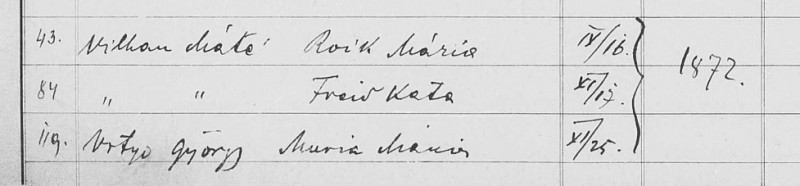 43. Vilhan Máté Roik Mária IX/16. 1872.
84 " " Freid Kata XI/17.
119. Vrtyo György Muria Mária XI/25.